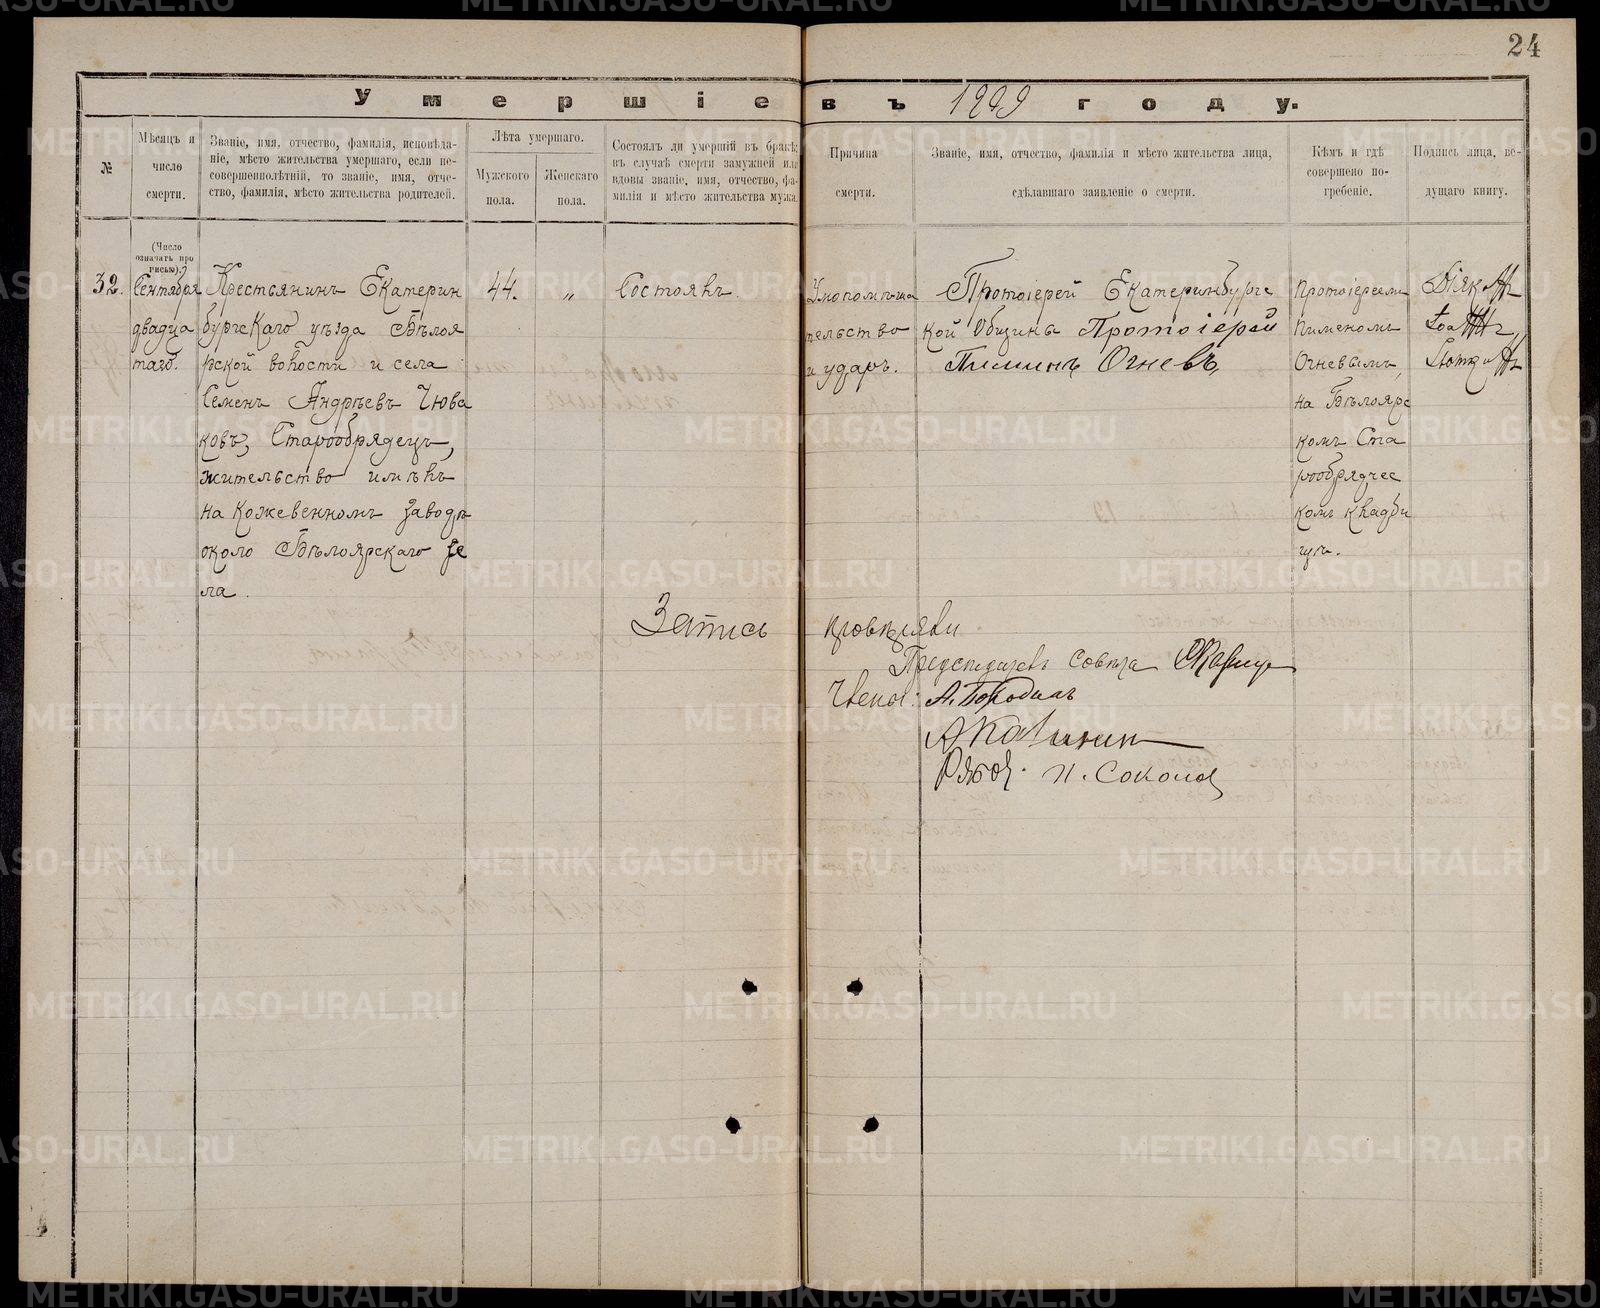 24
Умершіе въ 1909 году.
№
Мѣсяцъ и
число
смерти.
Званіе, имя, отчество, фамилія, исповѣда-
ніе, мѣсто жительства умершаго, если не-
совершеннолѣтній, то званіе, имя, отче-
ство, фамилія, мѣсто жительства родителей.
Лѣта умершаго.
Мужского
пола.
Женскаго
пола.
Состоялъ ли умершій въ бракѣ,
въ случаѣ смерти замужней или
вдовы званіе, имя, отчество, фа-
милія и мѣсто жительства мужа.
Причина
смерти.
Званіе, имя, отчество, фамилія и мѣсто жительства лица,
сдѣлавшаго заявленіе о смерти.
Кѣмъ и гдѣ
совершено по-
гребеніе.
Подпись лица, ве-
дущаго книгу.
(Число
означать про
писью).
32.
Сентября
двадца
таго.
Крестьянинъ Екатерин
бургскаго уѣзда Бѣлоя
рской волости и села
Семенъ Андрѣевъ Чюва
ковъ, Старообрядецъ,
жительство имѣлъ
на кожевенномъ заводѣ
около Бѣлоярскаго се
ла.
44.
"
Состоялъ.
Умопомѣша
тельство
и ударъ.
Протоіерей Екатеринбургс
кой Общины Протоіерей
Пиминъ Огневъ,
Протоіереемъ
Пименомъ
Огневымъ,
на Бѣлоярс
комъ Ста
рообрядчес
комъ кладби
щѣ.
Запись провѣряли
Предсѣдатель совѣта
Члены: А. Бородинъ
А Калинин
Рябов. И. Соколов
METRIKI.GASO-URAL.RU